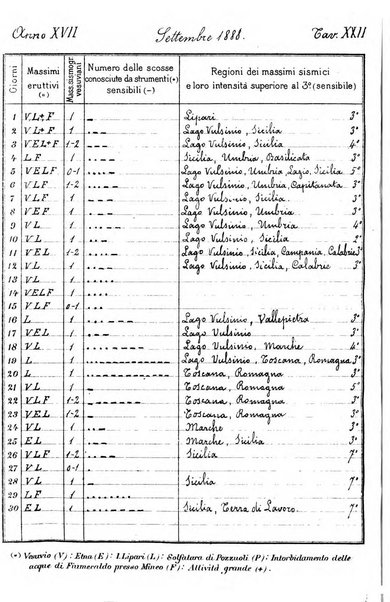 Anno XVII Settembre 1888. Tav. XXII
Giorni Massimi eruttivi (*) Mass. sismogr. vesuviani Numero delle scosse conosciute da strumenti (•) sensibili (–) Regioni dei massimi sismici e loro intensità superiore al 3° (sensibile)
1 VL+F 1 Lipari 3°
2 VL+F 1 Lago Vulsinio, Sicilia 3°
3 VEL+F 1-2 Lago Vulsinio, Sicilia 4°
4 LF 1 Sicilia, Umbria, Basilicata 3°
5 VELF 0-1 Lago Vulsinio, Umbria, Lazio, Sicilia 5°
6 VLF 1-2 Lago Vulsinio, Umbria, Capitanata 3°
7 VLF 1 Lago Vulsinio, Sicilia 3°
8 VEF 1 Lago Vulsinio, Umbria 3°
9 VL 1 Lago Vulsinio, Umbria 4°
10 VL 1 Lago Vulsinio, Sicilia 2°
11 VEL 1-2 Lago Vulsinio, Sicilia, Campania, Calabrie 3°
12 VL 1 Lago Vulsinio, Sicilia, Calabrie 3°
13 VL 1
14 VELF 1
15 VLF 0-1
16 L 1 Lago Vulsinio, Vallepietra 3°
17 VEL 1 Lago Vulsinio 3°
18 VL 1 Lago Vulsinio, Marche 4°
19 L 1 Lago Vulsinio, Toscana, Romagna 3°
20 L 1 Toscana, Romagna 3°
21 VL 1 Toscana, Romagna 5°
22 VLF 1-2 Toscana, Romagna 3°
23 VEL 1-2 Toscana, Romagna 3°
24 VL 1 Marche 3°
25 EL 1 Marche, Sicilia 3°
26 VLF 1-2 Sicilia 7°
27 VL 0-1
28 VL 1 Sicilia 7°
29 LF 1
30 EL 1 Sicilia, Terra di Lavoro. 7°
(*) Vesuvio (V) : Etna (E) : I. Lipari (L) : Solfatara di Pozzuoli (P) : Intorbidamento delle
acque di Fiumeraldo presso Mineo (F) : Attività grande (+).